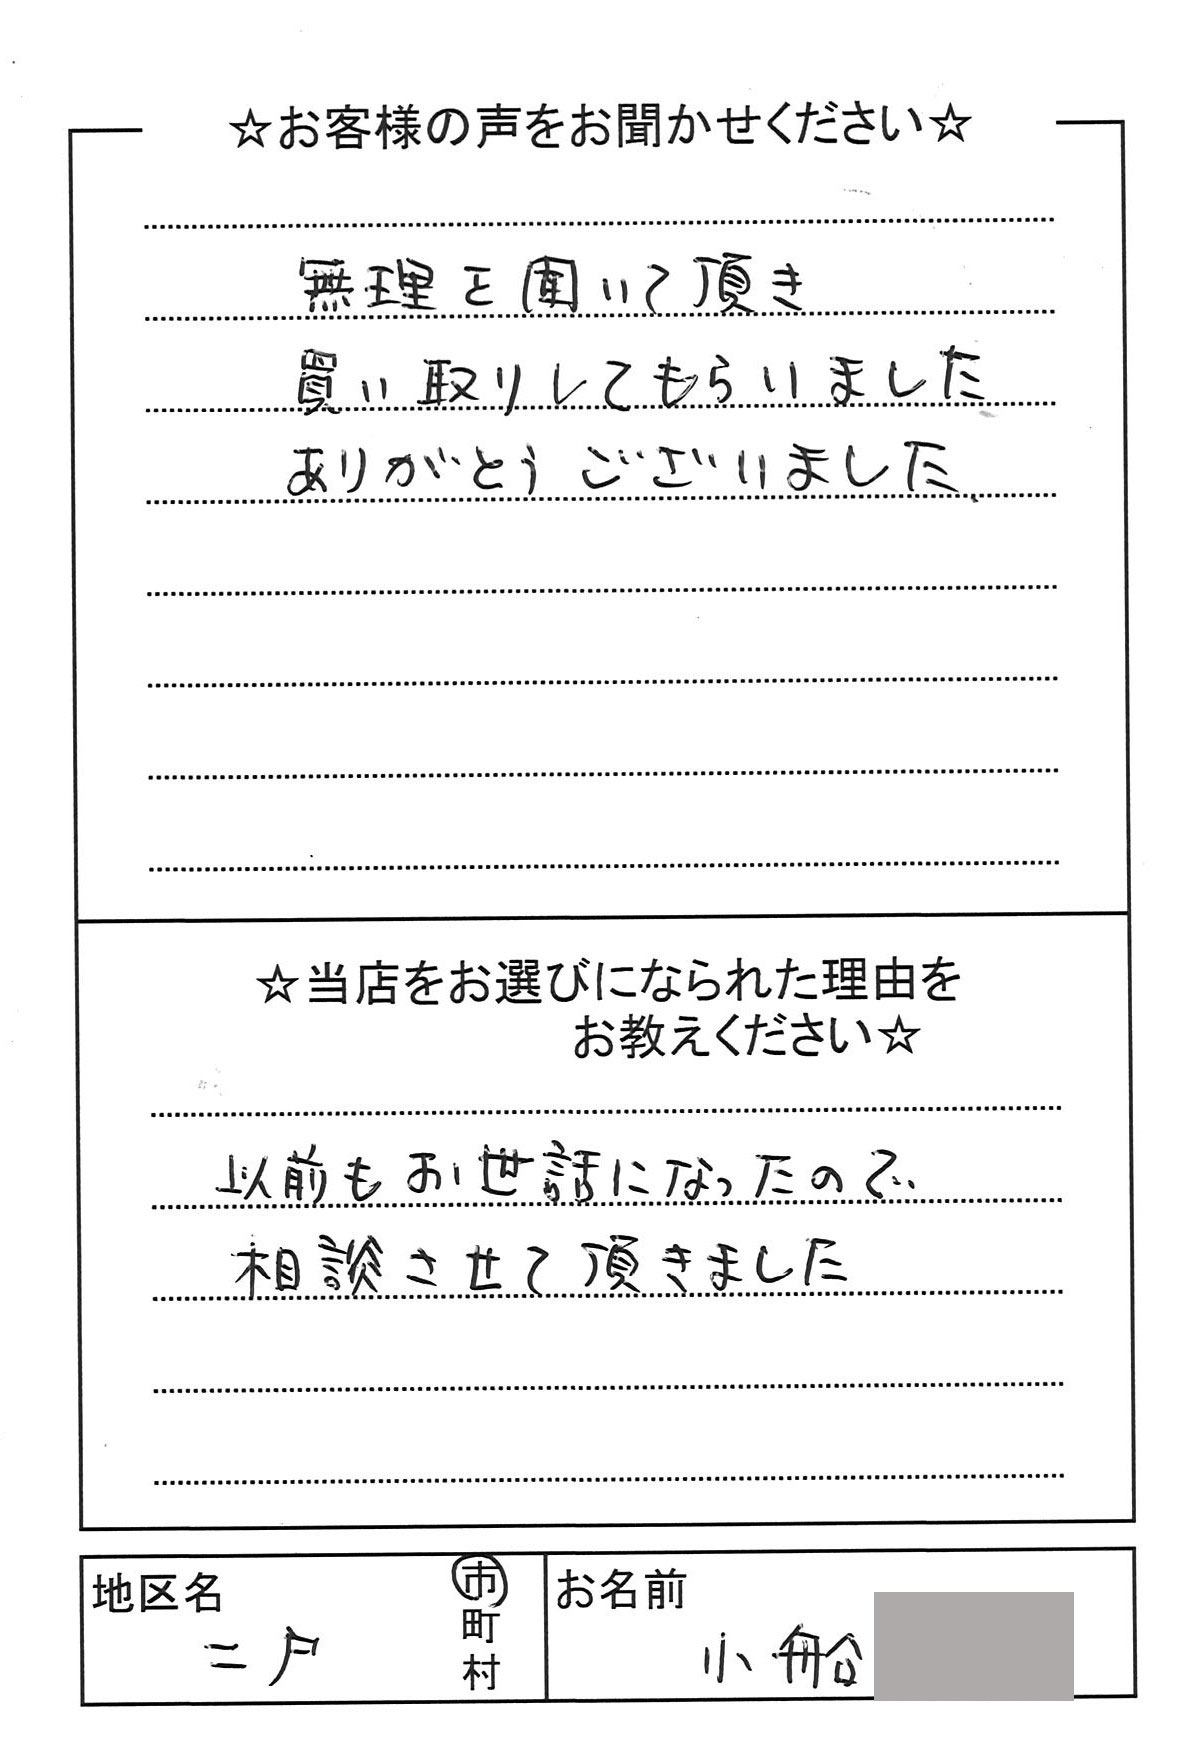 ☆お客様の声をお聞かせください☆
無理を聞いて頂き
買い取りしてもらいました
ありがとうございました。
☆当店をお選びになられた理由を
お教えください☆
以前もお世話になったので
相談させて頂きました
地区名 市
町
村
二戸
お名前
小船